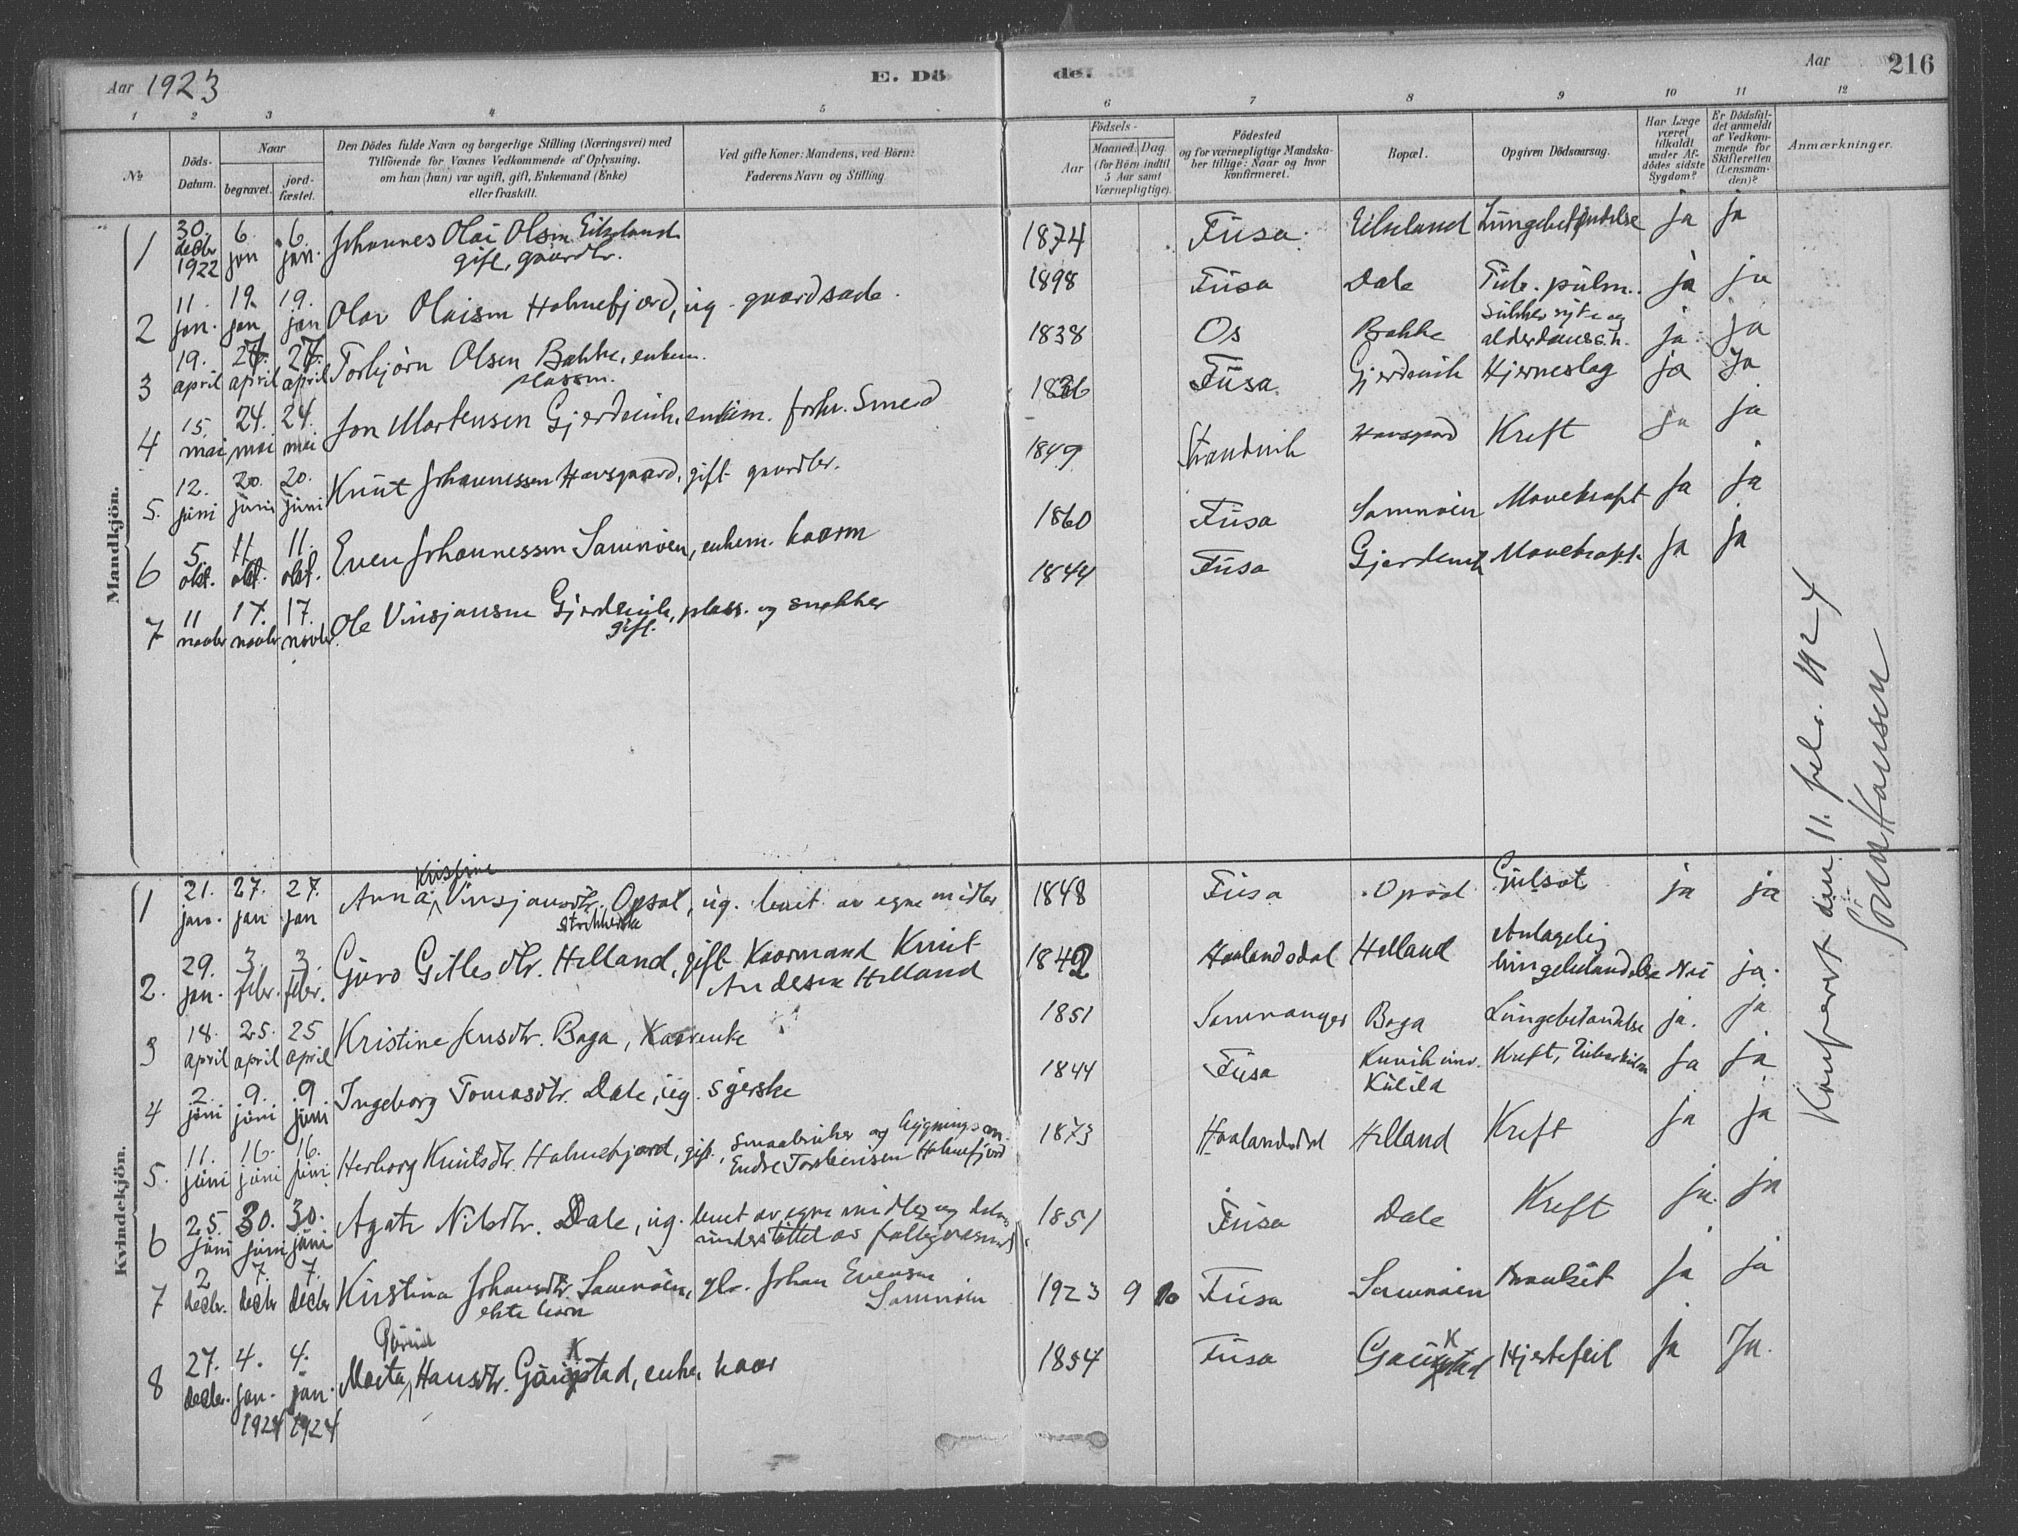 Aar 1923
E. Dö
de.
Aar 216
1 2 3 4 5 6 7 8 9 10 11 12
№
Döds-Datum.
Naar
begravet.
jord-fæstet.
Den Dödes fulde Navn og borgerlige Stilling (Næringsvei) med
Tilföiende for Voxnes Vedkommende af Oplysning,
om han (hun) var ugift, gift, Enkemand (Enke)
eller fraskilt.
Ved gifte Koner: Mandens, ved Börn:
Faderens Navn og Stilling
Födsels-
Aar
Maaned. Dag.
(for Börn indtil
5 Aar samt
Værnepligtige).
Födested
og for værnepligtige Mandska-
ber tillige: Naar og hvor
konfirmeret.
Bopæl.
Opgiven Dödsaarsag.
Har Læge
været
tilkaldt
under Af-
dödes sidste
Sygdom?
Er Dödsfal-
det anmeldt
af Vedkom-
mende for
Skifteretten
(Lensman-
den)?
Anmærkninger.
Mandkjön.
1 30. decbr 1922 6. jan 6. jan. Johannes Olai Olsen Eikeland gift, gaardbr. 1874 Fusa Eikeland Lungebetændelse ja ja
2 11. jan. 19. jan 19. jan Olav Olaisen Holmefjord, ug. gaardsarb. 1898 Fusa Dale Tub. pulm. ja ja
3 19. april 27. april 27. april Torbjörn Olsen Bakke, enkem. plassm. 1838 Os Bakke Sukkersyke og alderdomssv. ja ja
4 15. mai 24. mai 24. mai Jon Mortensen Gjerdevik, enkem. forhv. Smed 1836 Fusa Gjerdevik Hjerneslag ja ja
5. 12. juni 20. juni 20. juni Knut Johannessen Havsgaard, gift gaardbr. 1849 Strandvik Havsgard Kreft ja ja
6 5. okt. 11. okt. 11. okt. Even Johannessen Samnöen, enkem. kaarm 1860 Fusa Samnöen Mavekraft ja ja
7 11 novbr 17. novbr 17. novbr. Ole Vinsjansen Gjerdevik, plass. og snekker gift. 1844 Fusa Gjerdevik Mavekraft ja ja
Kvindekjön.
1 21. jan. 27. jan 27. jan Anna Kristine Vinsjansdtr. Opsal, ug. levet av egne midler strikkerske 1848 Fusa Opsal Gulsot ja ja
2. 29. jan. 3. febr. 3. febr. Guro Gitlesdtr. Helland, gift Kaarmand Knut Andersen Helland 1842 Haalandsdal Helland Antagelig lungebetændelse Nei ja.
3 18. april 25. april 25 april Kristine Jensdtr. Boga, Kaarenke 1851 Samnanger Boga Lungebetændelse ja. ja
4 2. juni 9. juni 9 juni Ingeborg Tomasdtr. Dale, ug. syerske 1844 Fusa Kreft, Tuberkulose ja ja
5. 11. juni 16. juni 16. juni Herborg Knutsdtr. Holmefjord, gift, Smaabruker og bygningsm. Endre Torbjörnsen Holmefjord 1873 Haalandsdal Helland Kreft ja ja
6 25. juni 30. juni 30. juni Agate Nilsdtr. Dale, ug. levet av egne midler og delvis understöttet av fattigvæsenet 1851 Fusa Dale Kreft ja. ja
7 2 decbr. 7. decbr 7. decbr Kristina Johansdtr. Samnöen, gbr. Johan Evensen Samnöen ekte barn 1923 9 20 Fusa Samnöen Bronkit ja ja
8 27. decbr. 4. jan. 1924 4. jan. 1924 Marta Hansdtr. Gaukstad, enke, kaar 1854 Fusa Gaukstad Hjertefeil ja Ja.
Konferert den 11. feb. 1924
Hansen